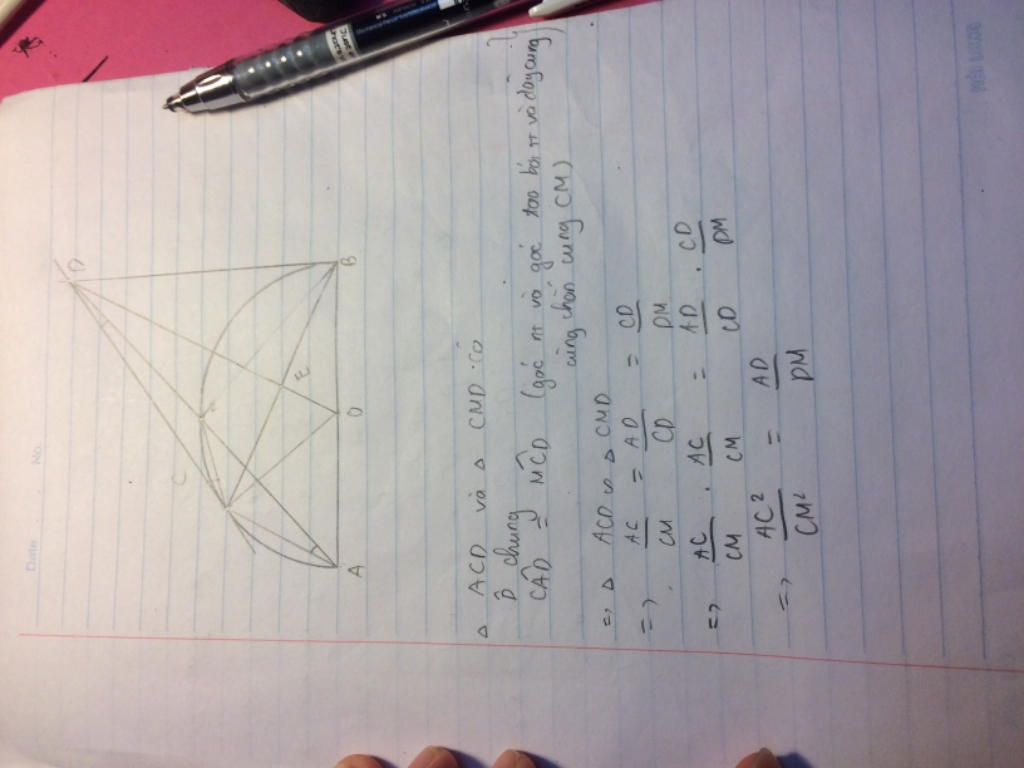 Date No.
D
C
E
A
O
B
△ ACD và △ CMD có
D̂ chung
CÂD = MĈD (góc nt và góc tạo bởi tt và dây cung
cùng chắn cung CM)
=> △ ACD ∽ △ CMD
=> AC/CM = AD/CD = CD/DM
=> AC/CM . AC/CM = AD/CD . CD/DM
=> AC²/CM² = AD/DM